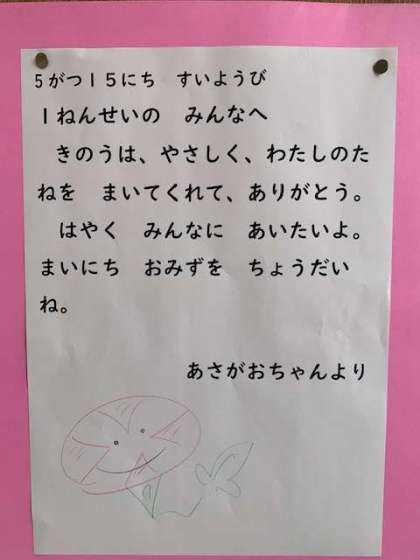 5がつ15にち　すいようび
1ねんせいの　みんなへ
　きのうは、やさしく、わたしのた
ねを　まいてくれて、ありがとう。
　はやく　みんなに　あいたいよ。
まいにち　おみずを　ちょうだい
ね。
あさがおちゃんより